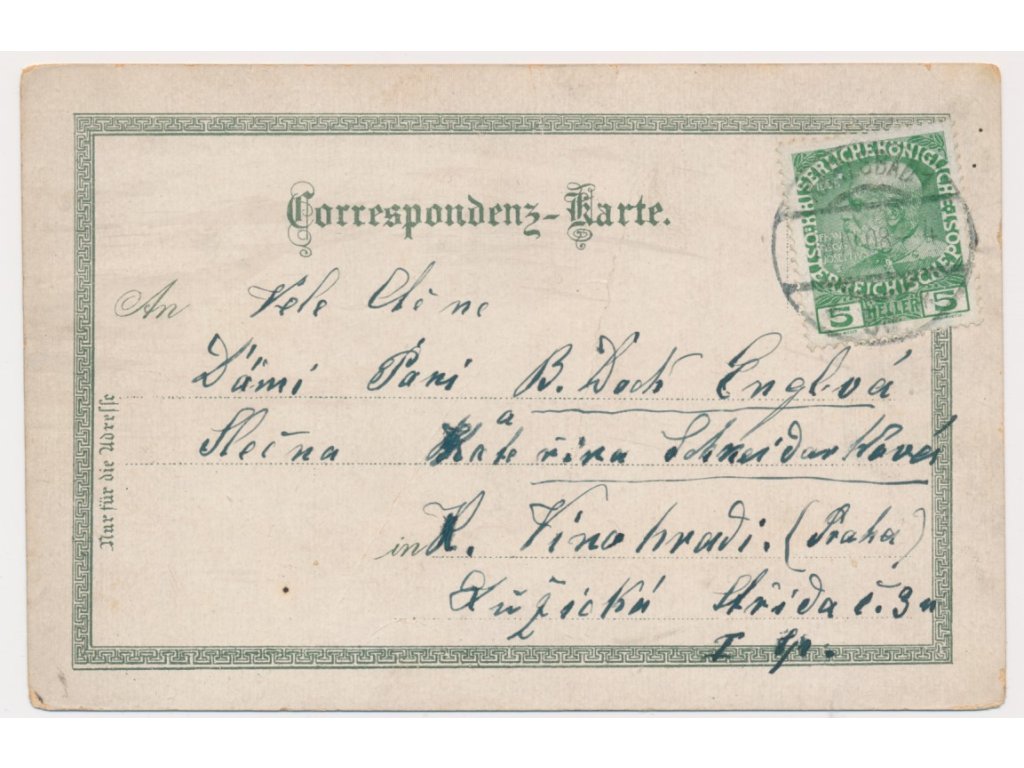 Correspondenz-Karte.
KAISERLICHE KÖNIGLICHE
ÖSTERREICHISCHE POST
5 HELLER 5
An Vele Ctěne
Dámi Paní B. Doch Englová
Slečna Kateřina Schneidarková
in K. Vinohradi. (Praha)
Lužická Střída č. 3 n
I sp.
Nur für die Adresse